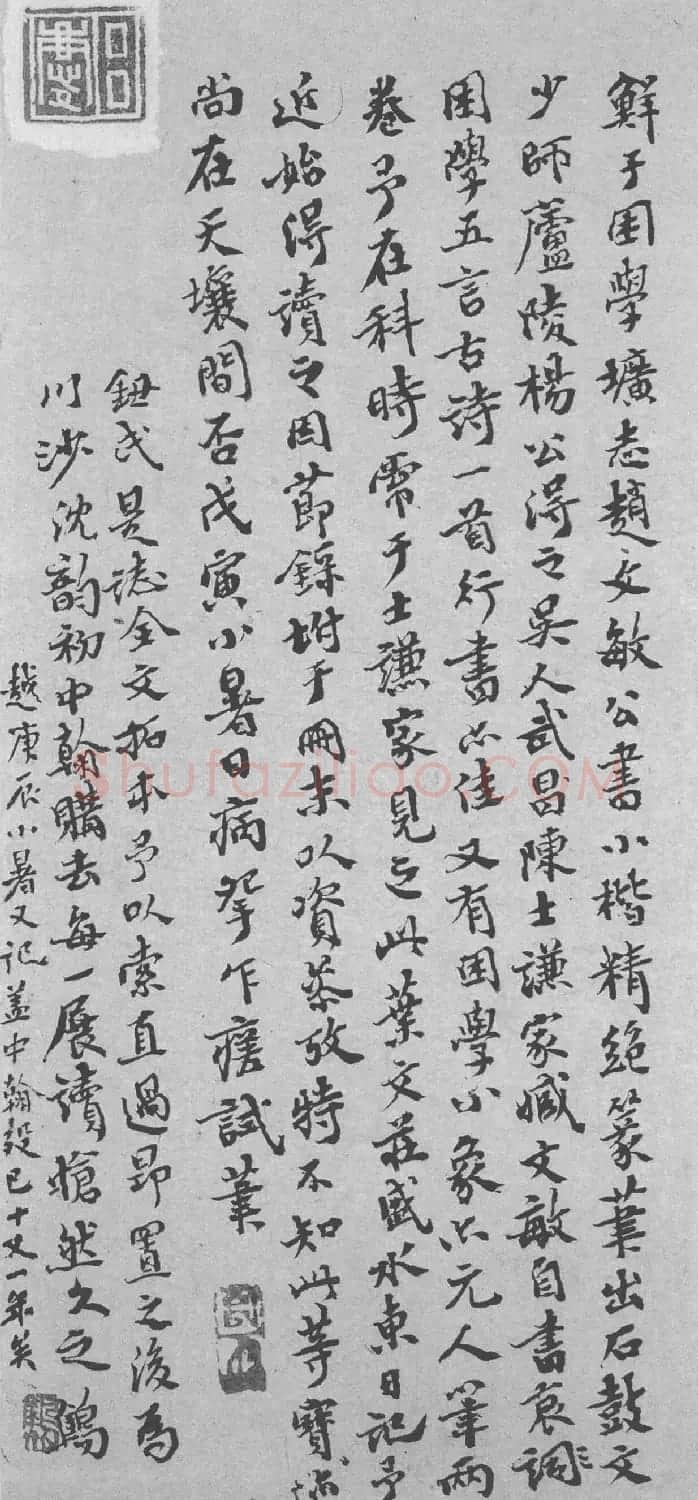 鮮于困學壙志趙文敏公書小楷精絕篆蓋出石鼓文
少師廬陵楊公得之吳人武昌陳士謙家臧文敏自書哀詞
困學五言古詩一首行書亦佳又有困學小象亦元人筆兩
卷予在科時嘗于士謙家見之此葉文莊盛水東日記予
近始得讀之因節錄坿于冊末以資叅攷特不知此等寶
尚在天壤間否戊寅小暑日病孥乍瘥試筆
鈕氏是誌全文拓本予以索直過昂置之後為
川沙沈韵初中翰購去每一展讀愴然久之 鶴
越庚辰小暑又記蓋中翰歿已十又一年矣
Shufaziliao.COM